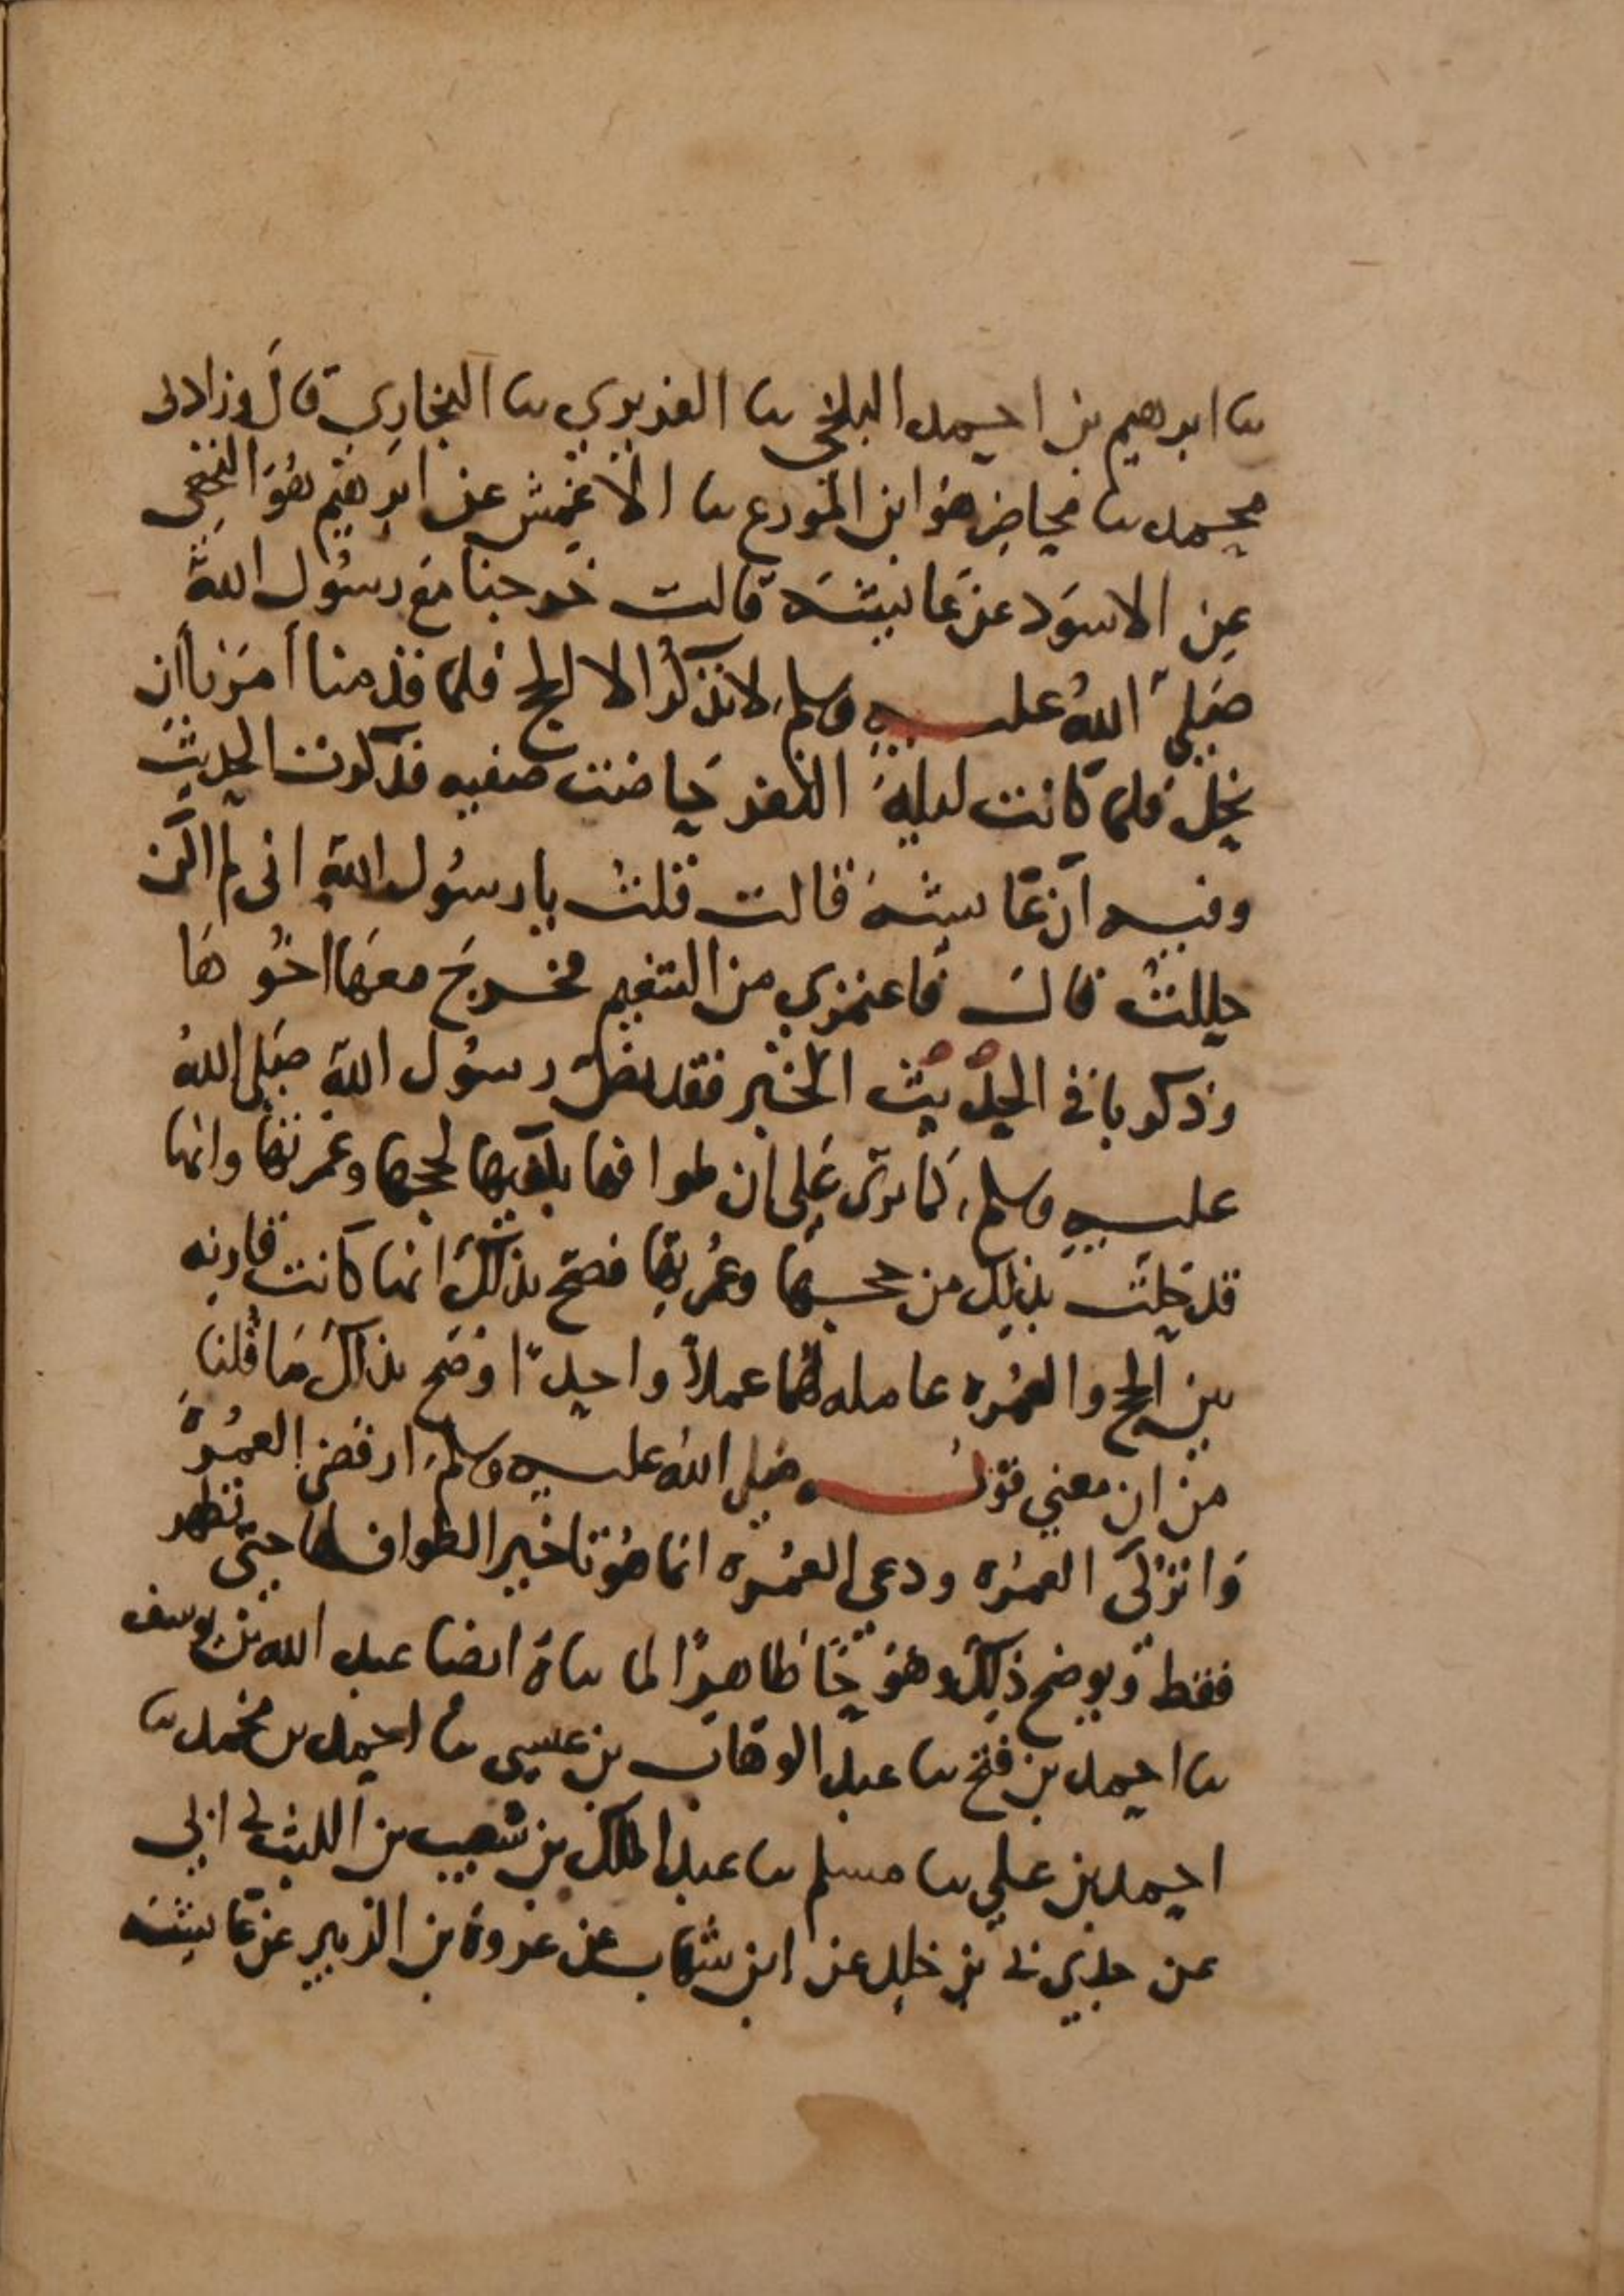 ثنا ابرهيم بن احمد البلخي ثنا الفربري ثنا البخاري قال وزادني
محمد ثنا محاضر هو ابن المورع ثنا الاعمش عن ابرهيم هو النخعي
عن الاسود عن عائشة قالت خرجنا مع رسول الله
صلى الله عليه وسلم لا نذكر الا الحج فلما قدمنا امرنا ان
نحل فلما كانت ليلة النفر حاضت صفيه فذكرت الحديث
وفيه ان عائشة قالت قلت يا رسول الله اني لم اكن
حللت قال فاعتمري من التنعيم فخرج معها اخوها
وذكر باقي الحديث الخبر فقد نص رسول الله صلى الله
عليه وسلم كما ترى على ان طوافها يكفيها لحجها وعمرتها وانها
قد حلت بذلك من حجها وعمرتها فصح بذلك انها كانت قارنه
بين الحج والعمره عامله لهما عملا واحدا وصح بذلك ما قلنا
من ان معنى قوله صلى الله عليه وسلم ارفضي العمرة
واتركي العمره ودعي العمره انما هو تاخير الطواف لها حتى تطهر
فقط ويوضح ذلك وضوحا ظاهرا لما ثناه ايضا عبد الله بن يوسف
ثنا احمد بن فتح ثنا عبد الوهاب بن عيسى ثنا احمد بن محمد ثنا
احمد بن علي ثنا مسلم ثنا عبد الملك بن شعيب بن الليث ني ابي
عن جدي ني بن خلد عن ابن شهاب عن عروة بن الزبير عن عائشة